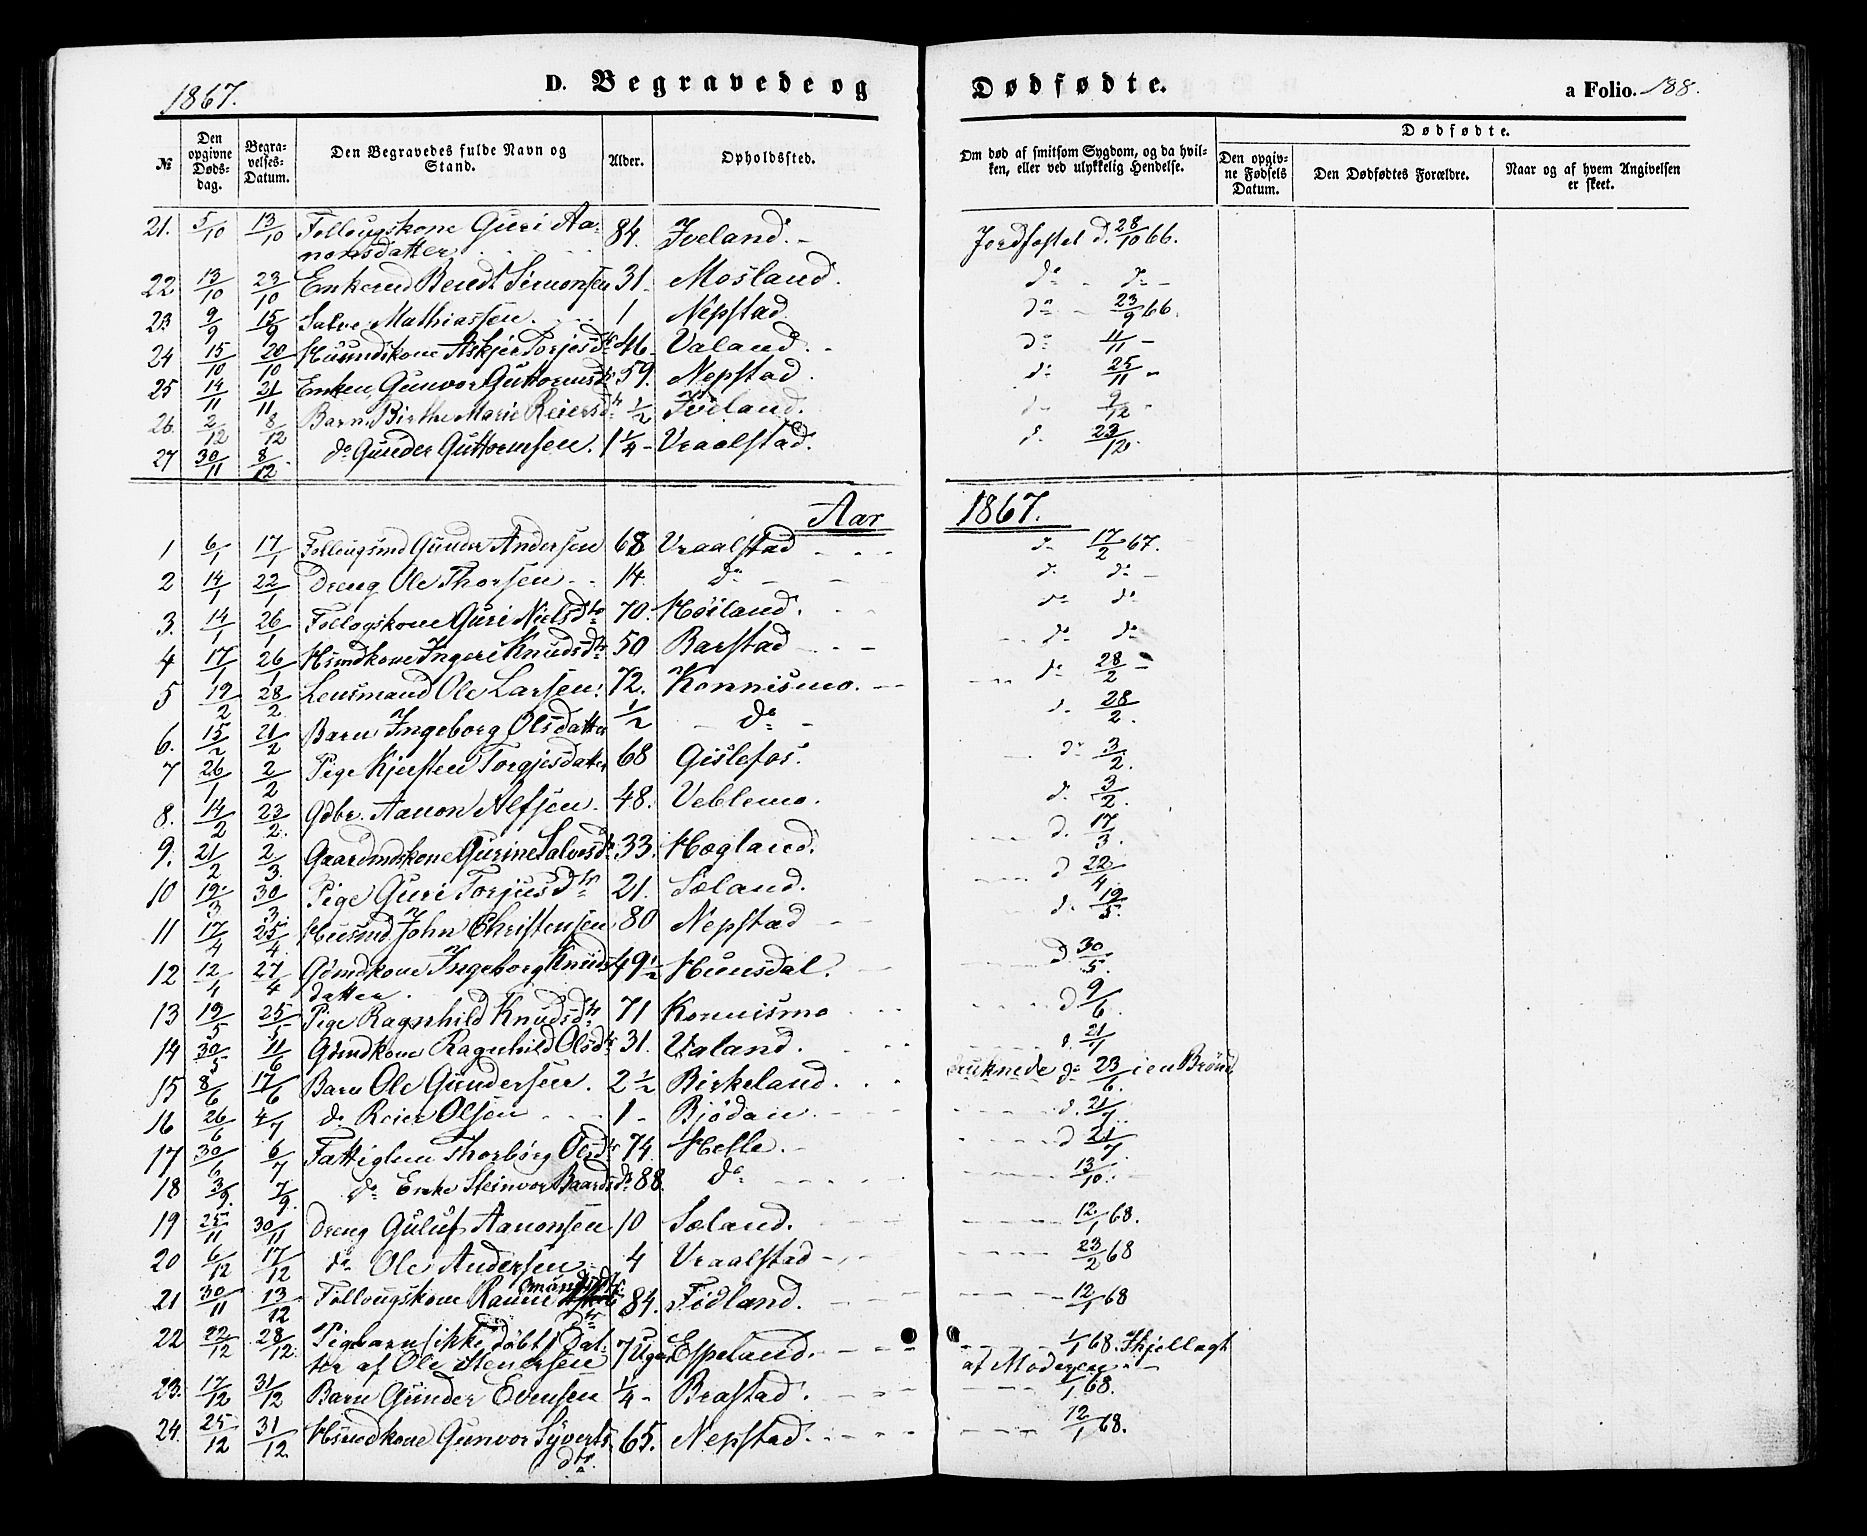 1867.
D. Begravede og Dødfødte.
a Folio. 188.
№
Den opgivne Døds-dag.
Begra-velses-Datum.
Den Begravedes fulde Navn og Stand.
Alder.
Opholdssted.
Om død af smitsom Sygdom, og da hvil-ken, eller ved ulykkelig Hendelse.
Dødfødte.
Den opgiv-ne Fødsels Datum.
Den Dødfødtes Forældre.
Naar og af hvem Angivelsen er skeet.
21. 5/10 13/10 Follougskone Guri Aa- 84. Iveland. - Jordfæstet d. 28/10 66.
nonsdatter
22 13/10 23/10 Enkemd Bendt Simonsen 31. Mosland. do - do -
23 9/9 15/9 Salve Mathiassen. 1 Nepstad. do - 23/9 66.
24 15/10 20/10 Huusmdskone Askjer Torjesdtr 46. Valand. - do 11/11 -
25 14/11 21/11 Enken Gunvor Guttormsdtr 59. Nepstad. do 25/11 -
26. 2/12 8/12 Barn Birthe Marie Reiersdtr 1/2 Iveland. do 9/12 -
27 30/11 8/12 do Gunder Guttormsen. 1 1/4 - Vraalstad. d. 23/12.
Aar 1867.
1 6/1 17/1 Follougsmd Gunder Andersen 68 Vraalstad - - - do 17/2 67.
2 14/1 22/1 Dreng Ole Thorsen - - 14. do - - d. do -
3. 14/1 26/1 Follogskone Guri Nielsdtr 70. Høiland. - - do do
4 17/1 26/1 Hsmdkone Ingeri Knudsdtr 50 Barstad - - - do do
5 19/2 28/2 Lensmand Ole Larsen. 72. Konnismo. - - do 28/2 -
6. 15/2 21/2 Barn Ingeborg Olsdatter 1/2 - do - d. 28/2.
7 26/1 2/2 Pige Kjersten Torgjesdatter 68 Gislefos. do 3/2.
8. 14/2 23/2. Gdbr. Aanon Alfsen. 48. Veblemo. d. 3/2.
9. 21/2 2/3. Gaardmdskone Gurine Salvesdtr 33. Hægland. d. 17/3.
10 19/3 30/3. Pige Guri Torjusdtr 21. Sæland. d 22/4.
11 17/4 25/4. Huusmd John Christensen 80 Nepstad - d. 19/5.
12 12/4 27/4 Gdmdkone Ingeborg Knuds- 49 1/2 Hunsdal. - d 30/5.
datter.
13 19/5 25/5 Pige Ragnhild Knudsdtr 71 Konnismo - - - d 9/6.
14 30/5 11/6 Gdmdkone Ragnhild Olsdtr 31. Valand. - - d. 21/7
15 8/6 17/6 Barn Ole Gundersen. 2 1/2 Birkeland. - - druknede do 23/6. i en Brønd
16 26/6 4/7 do Reier Olsen - - - 1 - Bjødan - - - d. 21/7
17 30/6 6/7 Fattiglem Thorborg Olsdtr 74. Helle. - d 21/7.
18 3/9. 7/9. do Enke Steinvor Baardsdtr 88. do - - - 13/10.
19 25/11 30/11 Dreng Guluf Aanonsen 10 Sæland. - - - 12/1 68.
20 6/12 17/12 do Ole Andersen - 4 Vraalstad - - - 23/2 68
21 30/11 13/12 Follougskone 84. Fidland. - - - 12/1 68
22 22/12 28/12. Pigebarn (ikke døbt) Dat- 7 Uger Espeland. - - - 1/1 68. Ihjellagt
ter af Ole Stenersen af Moderen - -
23. 17/12 31/12 Barn Gunder Evensen 1/4 - Brastad. - - - 1 68.
24. 25/12 31/12 Hsmdkone Gunvor Syverts- 65. Nepstad. - - - 12/1 68.
dtr.